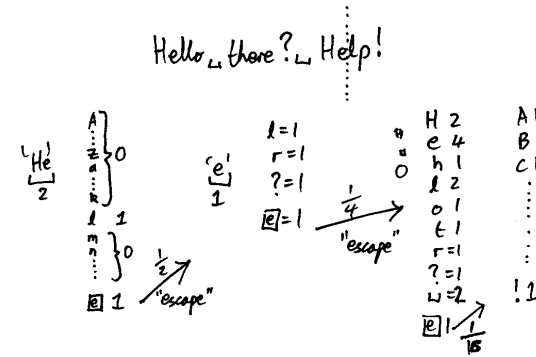 Hello␣there?␣Help!
'He'
2
A
z
a
k
} 0
l 1
m
n
} 0
[e] 1
1/2
"escape"
'e'
1
l=1
r=1
?=1
[e]=1
1/4
"escape"
0
H 2
e 4
h 1
l 2
o 1
t 1
r=1
?=1
␣=2
[e] 1
A 1
B
C 1
! 1